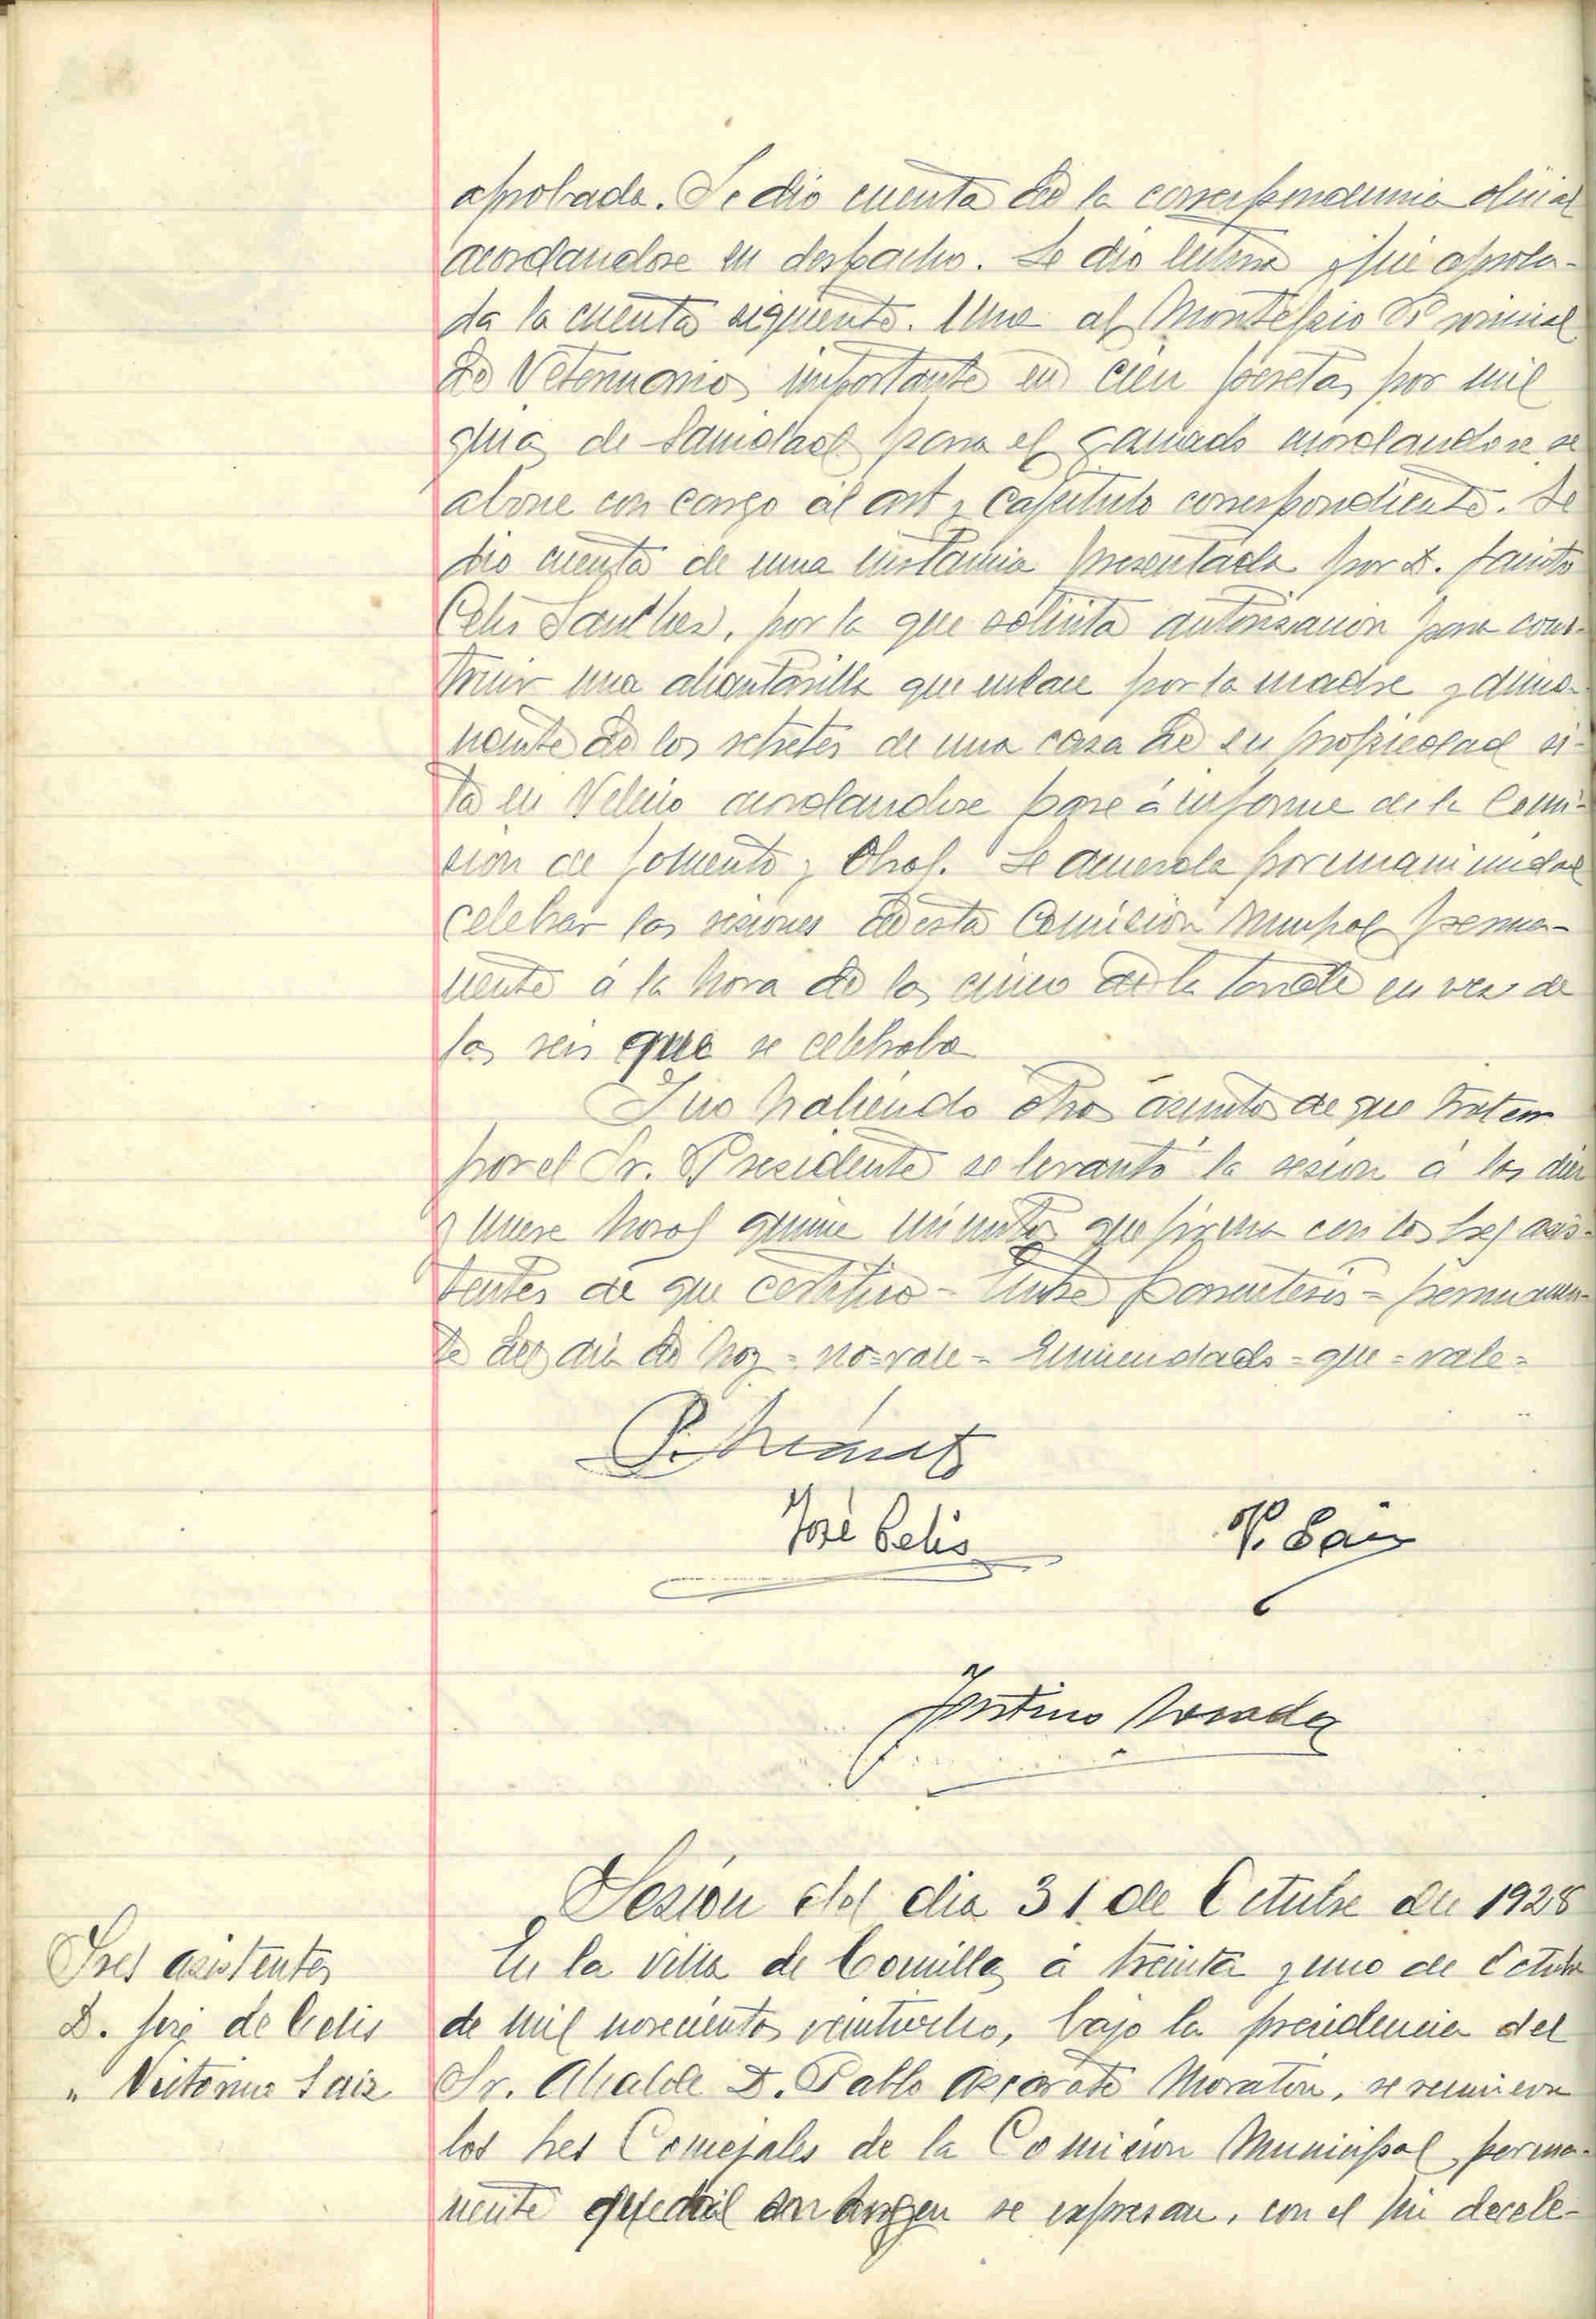 aprobada. Se dio cuenta de la correspondencia oficial
acordandose su despacho. Se dio lectura y fue aproba-
da la cuenta siguiente. Una al Montepio Provincial
de Veterinarios importante en cien pesetas por mil
guias de Sanidad para el ganado acordandose se
abone con cargo al art y capitulo correspondiente. Se
dio cuenta de una instancia presentada por D. Fausto
Celis Sanchez, por la que solicita autorizacion para cons-
truir una alcantarilla que enlace por la madre y dima-
nante de los retretes de una casa de su propiedad si-
ta en Velecio acordandose pase á informe de la Comi-
sion de fomento y Obras. Se acuerda por unanimidad
celebrar las sesiones de esta Comision Munpal perma-
nente á la hora de las cinco de la tarde en vez de
las seis que se celebraba
Y no habiendo otros asuntos de que tratar
por el Sr. Presidente se levantó la sesion á las diez
y nueve horas quince minutos que firma con los Sres asis-
tentes de que certifico - Entre parentesis = permanen-
te del dia de hoy = no=vale = Enmendado = que = vale =
José Celis
V. Saiz
Sesión del dia 31 de Octubre de 1928
Sres asistentes
D. José de Celis
" Victorino Saiz
En la villa de Comillas á treinta y uno de Octubre
de mil novecientos veintiocho, bajo la presidencia del
Sr. Alcalde D. Pablo Azcarate Moratin, se reunieron
los Sres Concejales de la Comision Municipal perma-
nente que al margen se expresan, con el fin de cele-